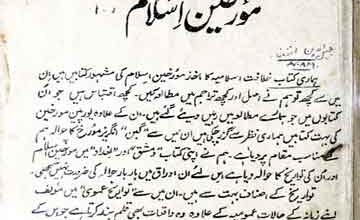 مورخین اسلام
ہماری کتاب خلافت اسلامیہ کا ماخذ مورخین اسلام کی مشہور کتابیں ہیں ان
میں سے کچھ تو ہم نے اصل اور کچھ تراجم میں مطالعہ کیں۔ کچھ اقتباس ہیں جو اُن
کتابوں میں جو ہمارے مطالعہ میں رہیں دیئے گئے ہیں۔ ان کے علاوہ یورپین مورخین
کی بہت کتابیں ہماری نظر سے گزر چکی ہیں ان میں سے "گبن" کا حوالہ ہم
نے مناسب مقام پر دیا ہے۔ ہم نے اپنی کتاب "دمشق" اور "بغداد" میں مورخین اسلام
اور ان کی تواریخ کا حوالہ دیا ہے اس لئے ان اوراق میں بار بار حوالہ کی ضرورت نہیں سمجھی۔
تواریخ کے اصناف بہت سے ہیں۔ ان میں سے "تواریخ عمومی" میں مؤلف
اپنے زمانہ کے حالات عمومیہ کے علاوہ وہ واقعات بھی قلم بند کرتا ہے جو اس کے